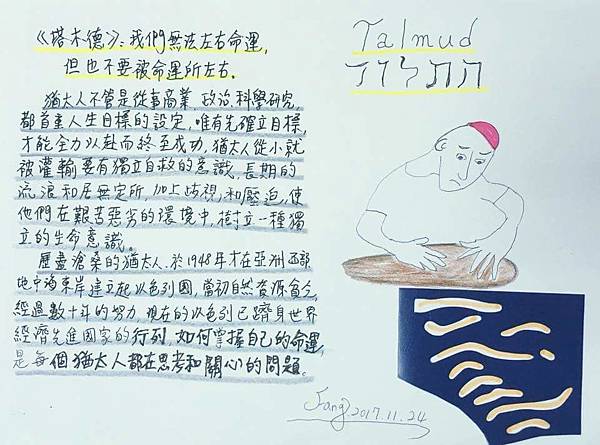 《塔木德》：我們無法左右命運，
但也不要被命運所左右。
猶太人不管是從事商業、政治、科學研究，
都首重人生目標的設定，唯有先確立目標，
才能全力以赴而終至成功，猶太人從小就
被灌輸要有獨立自救的意識，長期的
流浪和居無定所，加上歧視，和壓迫，使
他們在艱苦惡劣的環境中，樹立一種獨
立的生命意識。
歷盡滄桑的猶太人，於1948年才在亞洲西部
地中海東岸建立起以色列國，當初自然資源貧乏，
經過數十年的努力，現在的以色列已躋身世界
經濟先進國家的行列，如何掌握自己的命運，
是每個猶太人都在思考和關心的問題。
Talmud
התלוד
Fang, 2017.11.24